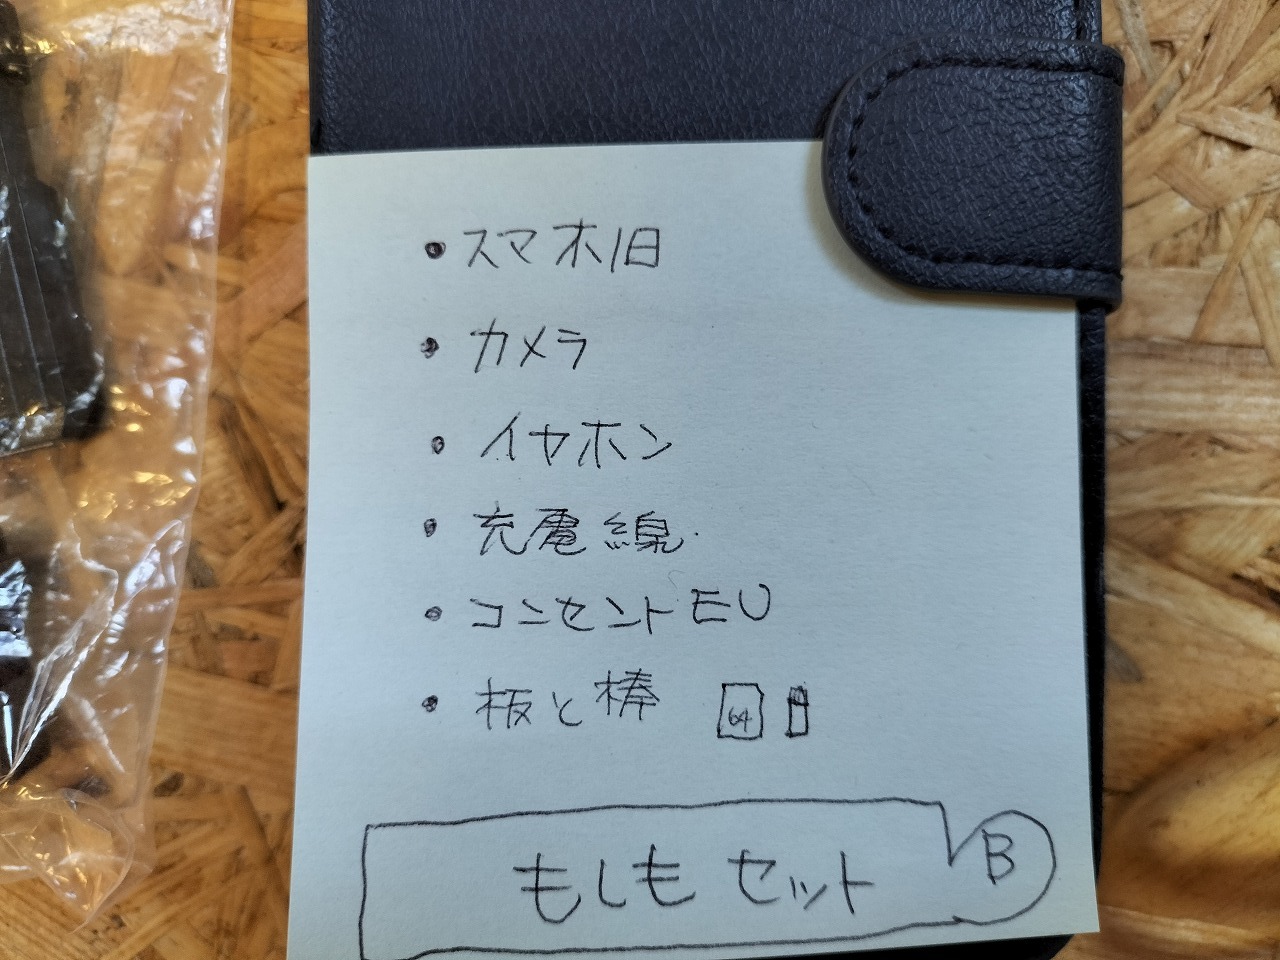 ・スマホ旧
・カメラ
・イヤホン
・充電線
・コンセントEU
・板と棒 64
もしもセット B